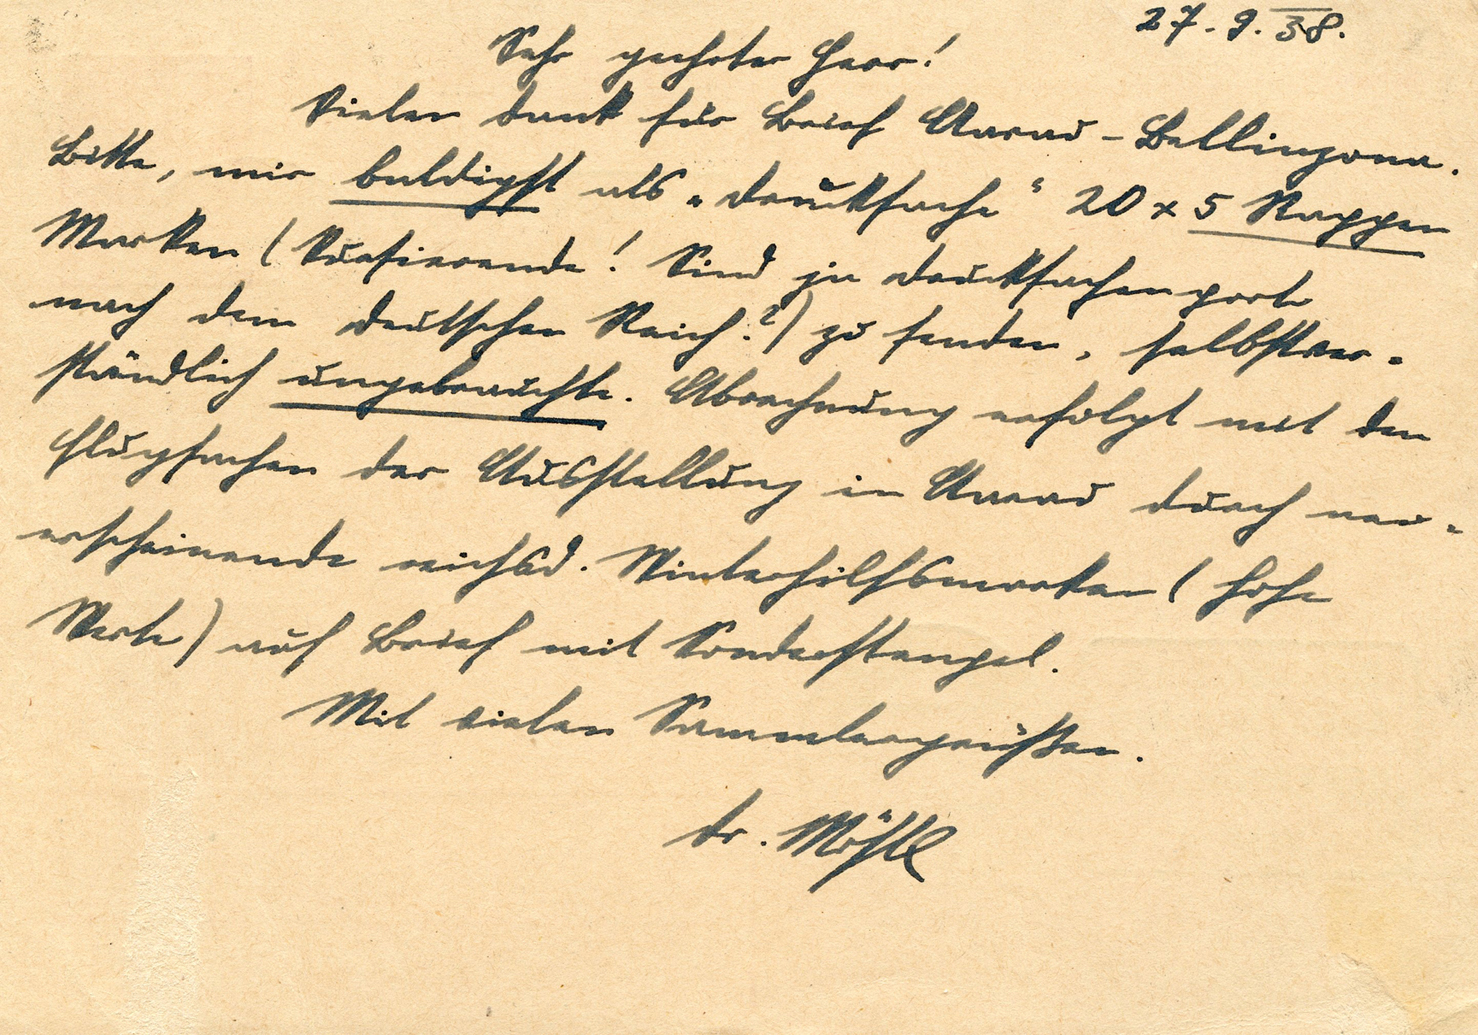 27.9.38.
Sehr geehrter Herr!
Vielen Dank für Brief Aarau-Bellinzona.
Bitte, mir baldigst als „Drucksache“ 20 x 5 Rappen
Marken (Kursierende! Sind ja Drucksachenporto
nach dem Deutschen Reich?) zu senden, selbstver-
ständlich ungebrauchte. Abrechnung erfolgt mit den
Flugsachen der Ausstellung in Aarau durch neu-
erscheinende reichsd. Winterhilfsmarken (hohe
Werte) auf Brief mit Sonderstempel.
Mit vielen Sammlergrüßen.
Dr.